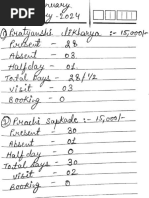 January
-2024
① Pratiyanshi :- 15,000/-
Present - 28
Absent - 03
Halfday - 01
Total Days - 28/1/2
Visit - 03
Booking - 0
② Prachi Sapkade :- 15,000/-
Present - 30
Absent - 01
Half Day - 0
Total Days - 30
Visit - 02
Booking - 0